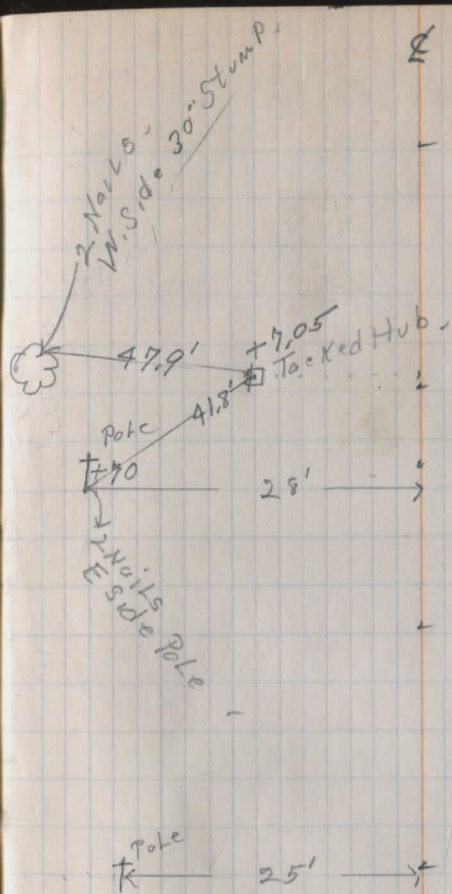 ℄
2 Nails.
W. Side 30" Stump.
+7.05
Tacked Hub.
47.9'
41.8'
Pole
+70
28'
2 Nails
E Side Pole
Pole
25'